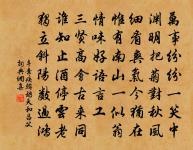 萬事紛紛一笑中
淵明把菊對秋風
細看爽氣今猶在
惟有南山一似翁
情味好語言工
三賢高會古來同
誰知止酒停雲老
獨立斜陽數過鴻
辛棄疾鷓鴣天和昌父
詞典網集